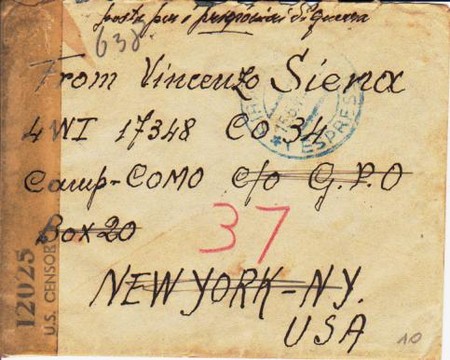 posta per i prigionieri di guerra
638
From Vincenzo Siena
4WI 17348 CO 34
Camp-COMO c/o G.P.O
Box 20
37
NEW YORK-NY.
USA
10
12025
U.S. CENSOR
ESPRES